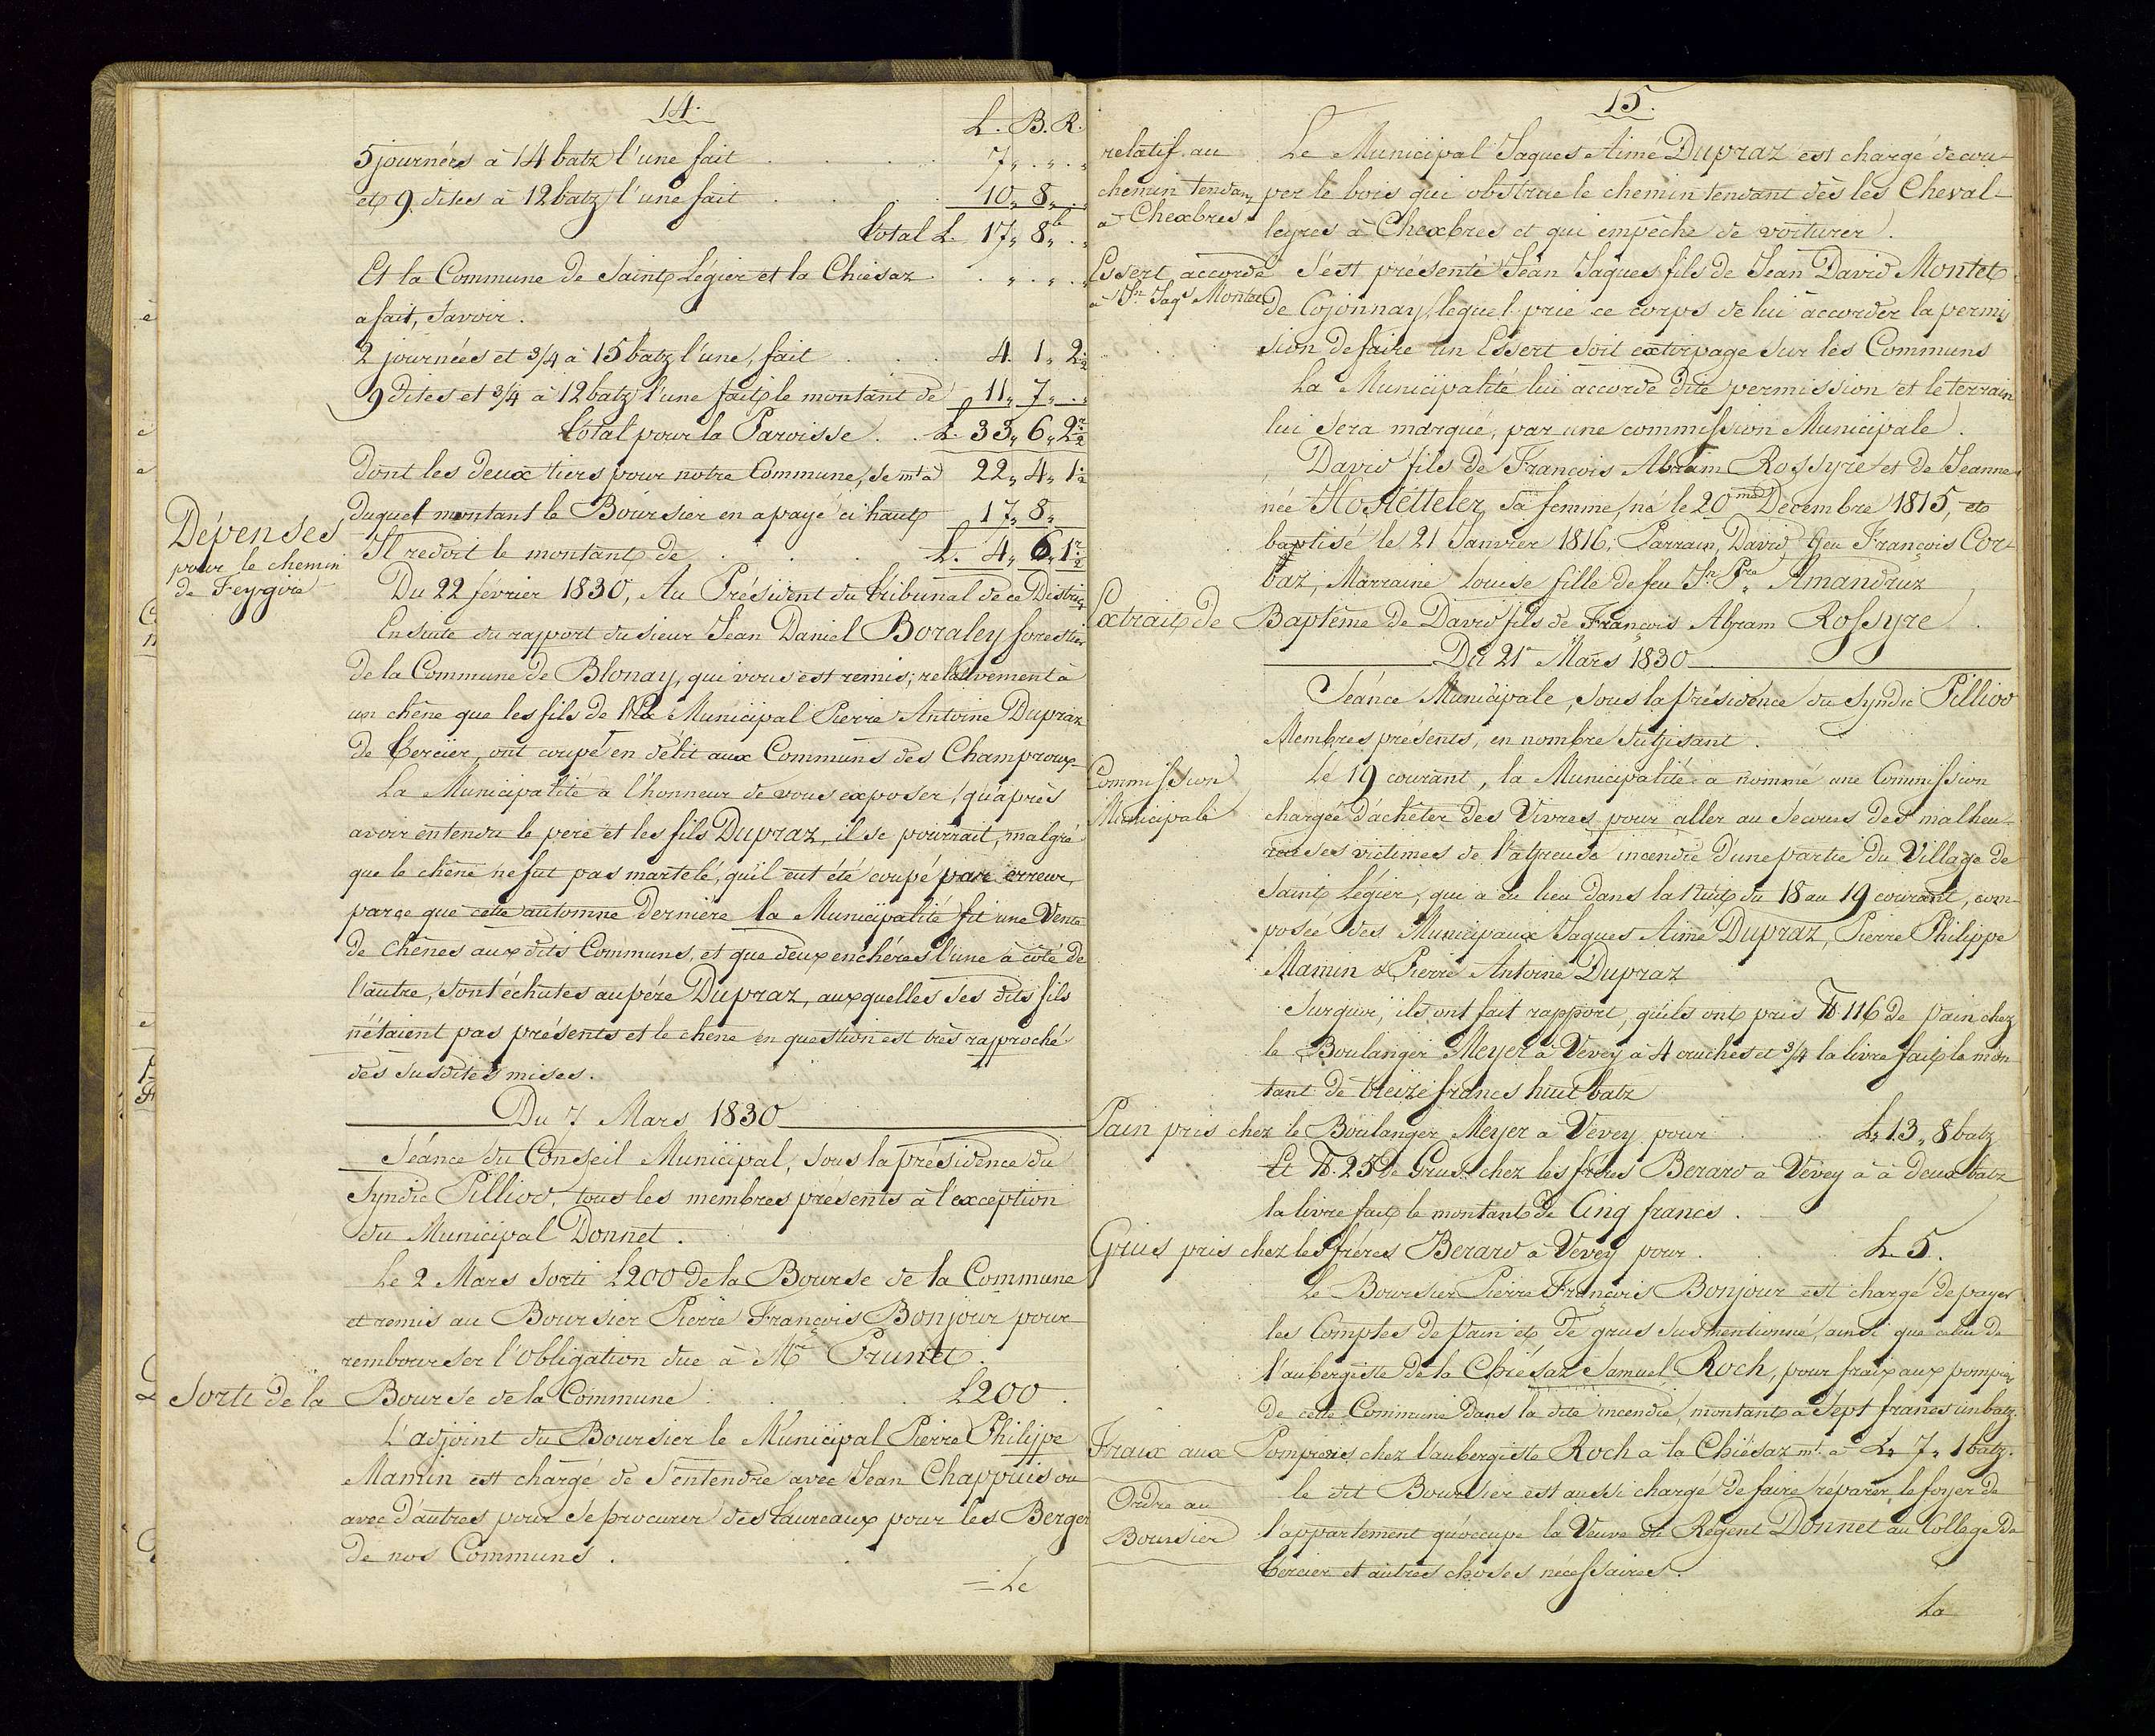 14.
L. B. R.
5 journées à 14 batz l'une fait . . . . 7„ . „ . „
et 9. dites à 12 batz l'une fait . . . . 10„ 8„ . „
Total L. 17„ 8„ . „
Et la Commune de Saint Légier et la Chiésaz . „ . „ . „
a fait, Savoir.
2 journées et 3/4 à 15 batz l'une, fait . . . 4. 1„ 2½
9 dites et 3/4 à 12 batz l'une fait le montant de 11„ 7„ . „
Total pour la Paroisse . . L. 33„ 6„ 2½
Dont les deux tiers pour notre Commune, se mt à 22„ 4„ 1½
Dépenses
pour le chemin
de Feygire
Duquel montant le Boursier en a payé ci haut 17„ 8„
Il redoit le montant de . . . . L. 4„ 6„ 1½
Du 22 février 1830, Au Président du Tribunal de ce District
Ensuite du rapport du sieur Jean Daniel Boraley forestier
de la Commune de Blonay, qui vous est remis; relativement à
un chêne que les fils de Municipal Pierre Antoine Dupraz
de Tercier, ont coupé en délit aux Communs des Champroux
La Municipalité a l'honneur de vous exposer, qu'après
avoir entendu le pere et les fils Dupraz, il se pourrait, malgré
que le chêne ne fut pas martelé, qu'il eut été coupé par erreur,
parçe que cette automne dernière la Municipalité fit une Vente
de chênes aux dits Communs, et que deux enchéres l'une à côté de
l'autre, sont échutes au pére Dupraz, auxquelles ses dits fils
n'étaient pas présents et le chêne en question est très rapproché
des susdites mises.
Du 7 Mars 1830
Séance du Conseil Municipal, sous la présidence du
Syndic Pilliod, tous les membres présents à l'exception
du Municipal Donnet.
Le 2 Mars Sorti L200 de la Bourse de la Commune
et remis au Boursier Pierre François Bonjour pour
rembourser l'Obligation due à Mr Prunet.
Sorti de la Bourse de la Commune . . . . L200 .
L'adjoint du Boursier le Municipal Pierre Philippe
Mamin est chargé de s'entendre avec Jean Chappuis ou
avec d'autres pour se procurer des Taureaux pour les Berger
de nos Communs .
= Le
15.
relatif au
chemin tendant
à Chexbres
Le Municipal Jaques Aimé Dupraz est chargé de cou-
per le bois qui obstrue le chemin tendant dès les Cheval-
leyres à Chexbres et qui empêche de voiturer.
Essert accordé
à Jn Jaqs Montet
S'est présenté Jean Jaques fils de Jean David Montet
de Cojonnay, lequel prie ce corps de lui accorder la permis
sion de faire un Essert soit extirpage sur les Communs
La Municipalité lui accorde dite permission et le terrain
lui sera marqué, par une commission Municipale.
David fils de François Abram Rossyre et de Jeanne
née Hostetteler, sa femme, né le 20me Décembre 1815, et
baptisé le 21 Janvier 1816, Parrain, David feu François Cor-
baz, Marraine Louise fille de feu Jn Pre Amandruz
Extrait de Baptême de David fils de François Abram Rossyre .
Du 21 Mars 1830
Séance Municipale, sous la présidence du Syndic Pilliod
Membres présents, en nombre suffisant.
Commission
Municipale
Le 19 courant, la Municipalité a nommé une Commission
chargée d'achêter des Vivres pour aller au secours des malheu-
reuses victimes de l'affreuse incendie d'une partie du Village de
Saint Légier, qui a eu lieu dans la Nuit du 18 au 19 courant, com-
posée des Municipaux Jaques Aimé Dupraz, Pierre Philippe
Mamin & Pierre Antoine Dupraz
Surquoi, ils ont fait rapport, qu'ils ont pris ℔ 116 de pain chez
le Boulanger Meyer à Vevey à 4 cruches et 3/4 la livre fait le mon
tant de treize francs huit batz
Pain pris chez le Boulanger Meyer à Vevey pour . . L„ 13„ 8 batz
Et ℔. 25 de Grus chez les fréres Berard à Vevey à à deux batz
la livre fait le montant de Cinq francs .
Grus pris chez les fréres Berard à Vevey pour . . L. 5.
Le Boursier Pierre François Bonjour est chargé de payer
les Comptes de pain et de grus susmentionné, ainsi que celui de
l'aubergiste de la Chiésaz Samuel Roch, pour fraix aux pompiers
de cette Commune dans la dite incendie, montant à Sept francs un batz.
Fraix aux Pompiers chez l'aubergiste Roch à la Chiésaz mt à L„ 7„ 1 batz.
Ordre au
Boursier
le dit Boursier est aussi chargé de faire réparer le foyer de
l'appartement qu'occupe la Veuve du Régent Donnet au Collége de
Tercier et autres choses nécessaires.
La